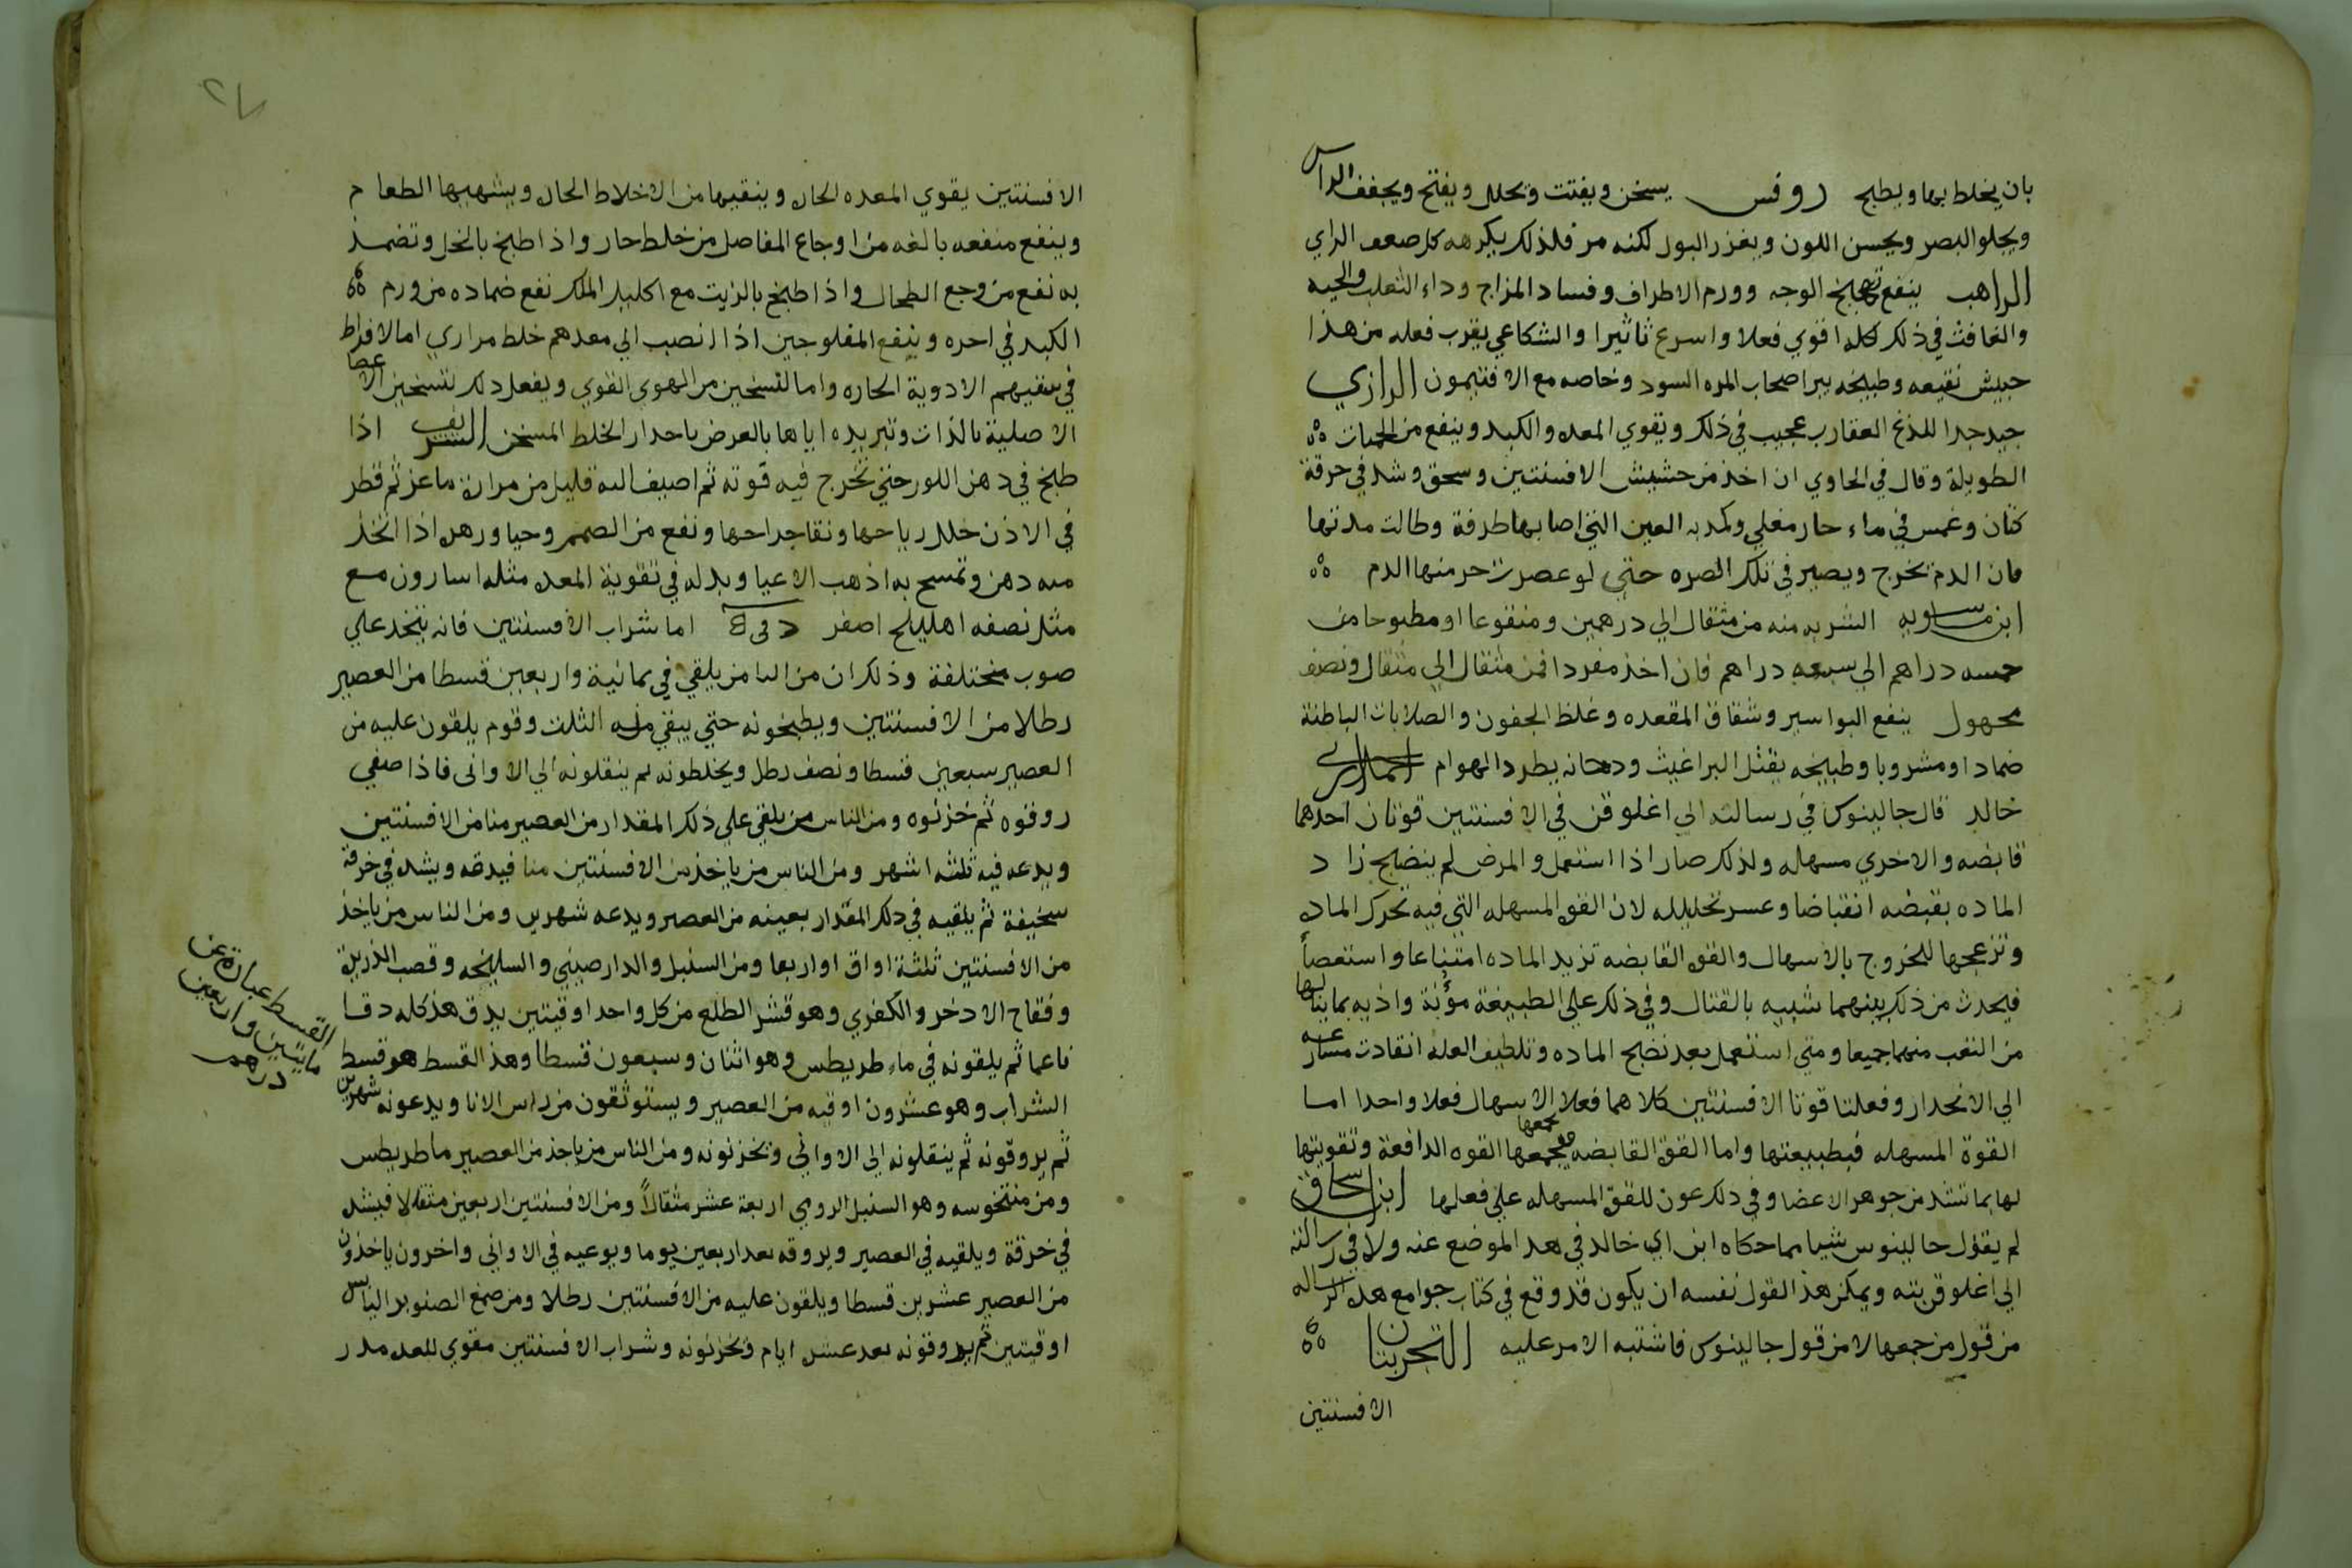 بان يخلط بها ويطبخ روفس يسخن ويفتت ويحلل ويفتح ويجفف الراس
ويجلو البصر ويحسن اللون ويغزر البول لكنه مر فلذلك يكرهه كل ضعف الراي
الراهب ينفع تهبج الوجه وورم الاطراف وفساد المزاج وداء الثعلب والحيه
والغافث في ذلك كله اقوي فعلا واسرع تاثيرا والشكاعي يقرب فعله من هذا
حبيش نقيعه وطبيخه يبرا صحاب المره السود وخاصه مع الافتيمون الرازي
جيد جدا للذغ العقارب عجيب في ذلك ويقوي المعده والكبد وينفع من الحميات
الطويلة وقال في الحاوي ان اخذ من حشيش الافسنتين وسحق وشد في خرقة
كتان وغمس في ماء حار مغلي وكمد به العين التي اصابها طرفة وطالت مدتها
فان الدم يخرج ويصير في تلك الصره حتي لو عصرت خر منها الدم
ابن ماسويه الشربه منه من مثقال الي درهمين ومنقوعا او مطبوخا من
خمسه دراهم الي سبعه دراهم فان اخذ مفردا فمن مثقال الي مثقال ونصف
مجهول ينفع البواسير وشقاق المقعده وغلظ الجفون والصلابات الباطنة
ضمادا ومشروبا وطبيخه يقتل البراغيث ودخانه يطرد الهوام
خالد قال جالينوس في رسالته الي اغلوقن في الافسنتين قوتان احدهما
قابضه والاخري مسهله ولذلك صار اذا استعمل والمرض لم ينضج زاد
الماده بقبضه انقباضا وعسر تحليلله لان القوه المسهله التي فيه تحرك الماده
وتزعجها للخروج بالاسهال والقوه القابضه تزيد الماده امتناعا واستعصاأ
فيحدث من ذلك بينهما شبيه بالقتال وفي ذلك علي الطبيعة مؤنة واذيه بما ينالها
من التعب منهما جميعا ومتي استعمل بعد نضج الماده وتلطيف العله انقادت مسارعه
الي الانحدار وفعلتا قوتا الافسنتين كلاهما فعلا الاسهال فعلا واحدا اما
القوة المسهله فبطبيعتها واما القوه القابضه فبجمعها القوه الدافعة وتقويتها
لها بما تشد من جوهر الاعضا وفي ذلك عون للقوه المسهله علي فعلها ابن اسحاق
لم يقول جالينوس شيا مما حكاه ابن ابي خالد في هذا الموضع عنه ولا في رسالته
الي اغلوقن بته ويمكن هذا القول نفسه ان يكون قد وقع في كتاب جوامع هذه الرساله
من قول من جمعها لا من قول جالينوس فاشتبه الامر عليه التجربتان
الافسنتين
٢٧
الافسنتين يقوي المعده الحاره وينقيها من الاخلاط الحاره ويشهيها الطعام
وينفع منفعه بالغه من اوجاع المفاصل من خلط حار واذا طبخ بالخل وتضمد
به نفع من وجع الطحال واذا طبخ بالزيت مع اكليل الملك نفع ضماده من ورم
الكبد في اخره وينفع المفلوجين اذا انصب الي معدهم خلط مراري اما الافراط
في سقيهم الادوية الحاره واما لتسخين من الهوي القوي ويفعل ذلك لتسخين الاعضا
الاصلية بالذات وتبريده اياها بالعرض باحدار الخلط المسخن الشريف اذا
طبخ في دهن اللوز حتي تخرج فيه قوته ثم اضيف اليه قليل من مرارة ماعز ثم قطر
في الاذن حلل رياحها ونقا جراحها ونفع من الصمم وحيا ورهل اذا اتخذ
منه دهن وتمسح به اذهب الاعيا وبدله في تقوية المعده مثله اسارون مع
مثل نصفه اهليلج اصفر اما شراب الافسنتين فانه يتخذ علي
ضوب مختلفة وذلك ان من النا من يلقي في ثمانية واربعين قسطا من العصير
رطلا من الافسنتين ويطبخونه حتي يبقي منه الثلث وقوم يلقون عليه من
العصير سبعين قسطا ونصف رطل ويخلطونه ثم ينقلونه الي الاواني فاذا صفي
روقوه ثم خزنوه ومن الناس من يلقي علي ذلك المقدار من العصير منا من الافسنتين
ويدعه فيه ثلثه اشهر ومن الناس من ياخذ من الافسنتين منا فيدقه ويشده في خرقة
سخيفة ثم يلقيه في ذلك المقدار بعينه من العصير ويدعه شهرين ومن الناس من ياخذ
من الافسنتين ثلثة اواق او اربعا ومن السنبل والدارصيني والسليخه وقصب الذريرة
وفقاح الادخر والكفري وهو قشر الطلع من كل واحد اوقيتين يدق هذا كله دقا
ناعما ثم يلقونه في ماء طريطس وهو اثنان وسبعون قسطا وهذا القسط هو قسط
الشراب وهو عشرون اوقيه من العصير ويستوثقون من راس الانا ويدعونه شهرين
ثم يروقونه ثم ينقلونه الي الاواني ويخزنونه ومن الناس من ياخذ من العصير ماطريطس
ومن منتخوسه وهو السنبل الرومي اربعة عشر مثقالاً ومن الافسنتين اربعين مثقالا فيشد
في خرقة ويلقيه في العصير ويروقه بعد اربعين يوما ويوعيه في الاواني واخرون ياخذون
من العصير عشرين قسطا ويلقون عليه من الافسنتين رطلا ومن صمغ الصنوبر اليابس
اوقيتين ثم يروقونه بعد عشره ايام ويخزنونه وشراب الافسنتين مقوي للمعده مدر
القسط عبارة عن
مايتين واربعين
درهم